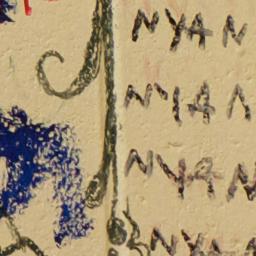 NYAN
NYAN
NYAN
NYAN